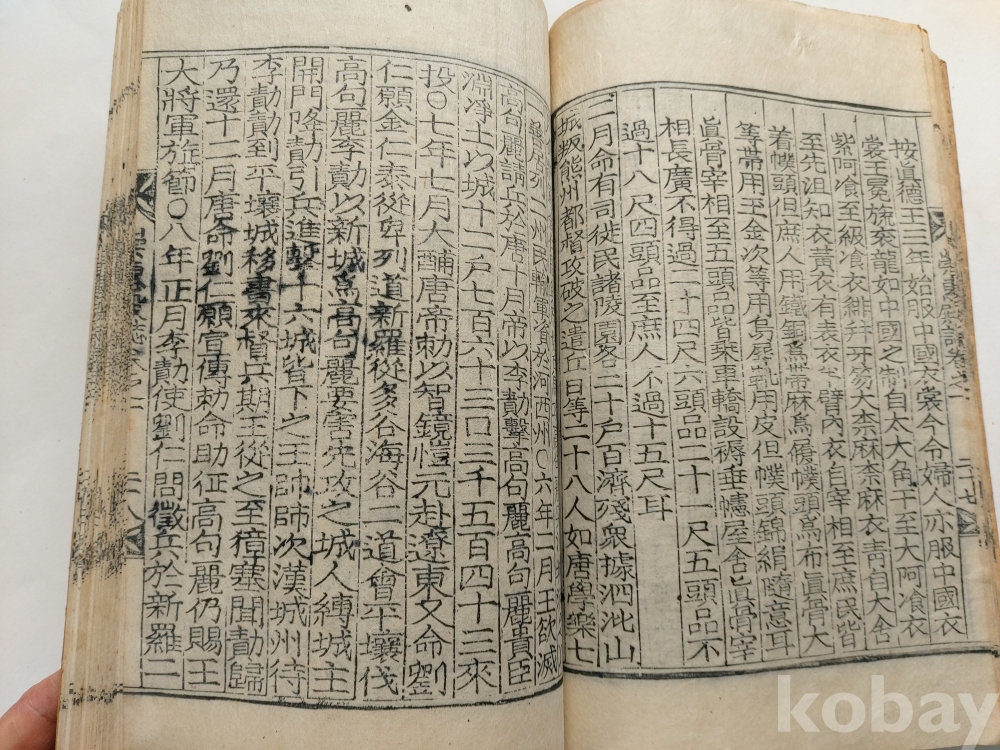 按眞德王三年始服中國衣裳今令婦人亦服中國衣
裳王冕旒衮龍如中國之制自太大角干至大阿飡衣
紫阿飡至級飡衣緋幷牙笏大奈麻奈麻衣青自大舍
至先沮知衣黃衣有表衣半臂內衣自宰相至庶民皆
着幞頭但庶人用鐵銅爲帶麻爲履幞頭爲布眞骨大
等帶用玉金次等用烏犀軌用皮但幞頭錦絹隨意耳
眞骨宰相至五頭品皆乘車轎設褥垂幰屋舍眞骨宰
相長廣不得過二十四尺六頭品二十一尺五頭品不
過十八尺四頭品至庶人不過十五尺耳
二月命有司徙民諸陵園各二十戶百濟殘衆據泗沘山
城叛熊州都督攻破之遣丘日等二十八人如唐學樂七
列二州民軍資於河西州〇六年二月王欲滅
高句麗請兵於唐十月帝以李勣擊高句麗高句麗貴臣
淵淨土以城十二戶七百六十三口三千五百四十三來
投〇七年七月大酺唐帝勅以智鏡愷元赴遼東又命劉
仁願金仁泰從卑列道新羅從多谷海谷二道會平壤伐
高句麗李勣以新城爲高句麗要害先攻之城人縛城主
開門降勣引兵進擊十六城皆下之王師師次漢城州待
李勣勣到平壤城移書來督兵期王從之至獐塞聞勣歸
乃還十二月唐命劉仁願宣傳勅命助征高句麗仍賜王
大將軍旌節〇八年正月李勣使劉仁問徵兵於新羅二
卷之一
二十七
二八
kobay